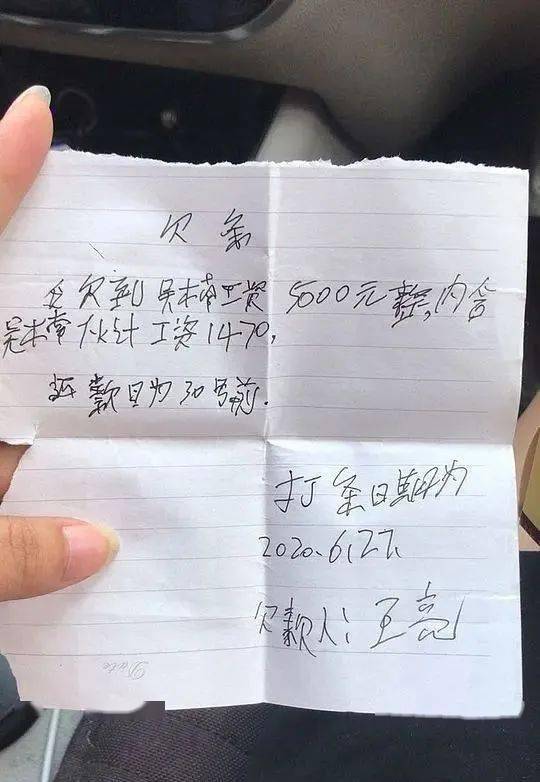 欠条
今欠到吴木常工资 5000元整,内含
吴木常伙计工资1470,
还款日为30号前.
打条日期为
2020.6.27.
欠款人:王亮
Date